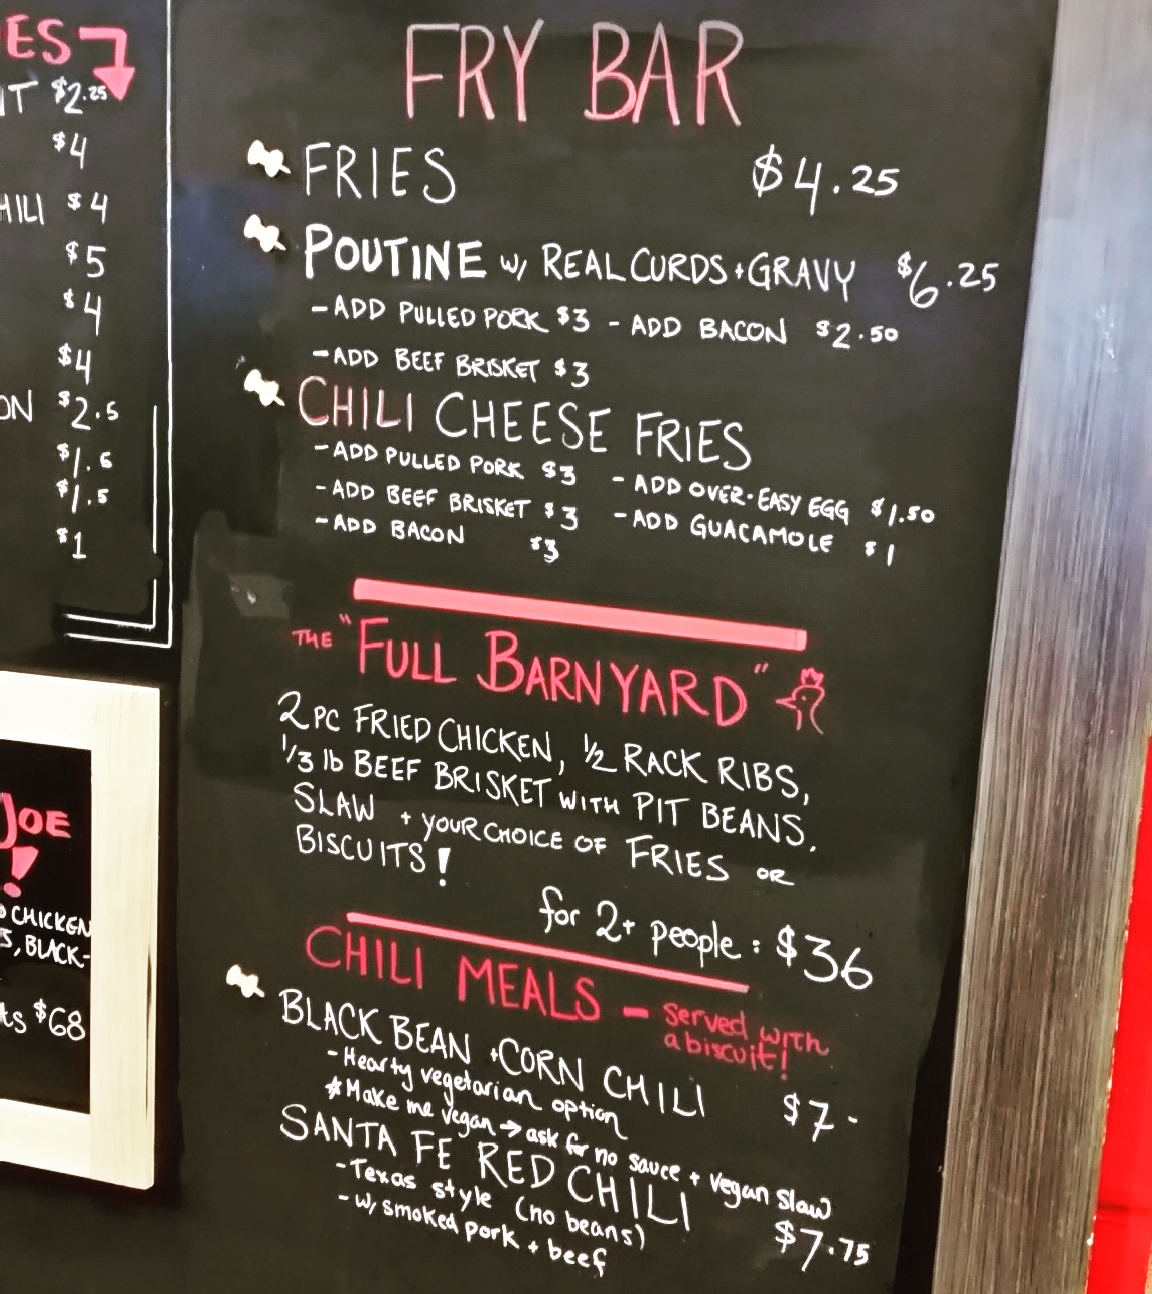 ES
IT $2.25
$4
HILI $4
$5
$4
$4
ON $2.5
$1.5
$1.5
$1
JOE
!
CHICKEN
S, BLACK-
ts $68
FRY BAR
FRIES $4.25
POUTINE w/ REAL CURDS + GRAVY $6.25
- ADD PULLED PORK $3 - ADD BACON $2.50
- ADD BEEF BRISKET $3
CHILI CHEESE FRIES
- ADD PULLED PORK $3 - ADD OVER-EASY EGG $1.50
- ADD BEEF BRISKET $3 - ADD GUACAMOLE $1
- ADD BACON $3
THE "FULL BARNYARD"
2 PC FRIED CHICKEN, 1/2 RACK RIBS,
1/3 lb BEEF BRISKET WITH PIT BEANS,
SLAW + YOUR CHOICE OF FRIES OR
BISCUITS!
for 2+ people: $36
CHILI MEALS - served with
a biscuit!
BLACK BEAN + CORN CHILI $7-
- Hearty vegetarian option
* Make me vegan → ask for no sauce + vegan slaw
SANTA FE RED CHILI $7.75
- Texas style (no beans)
- w/ smoked pork + beef